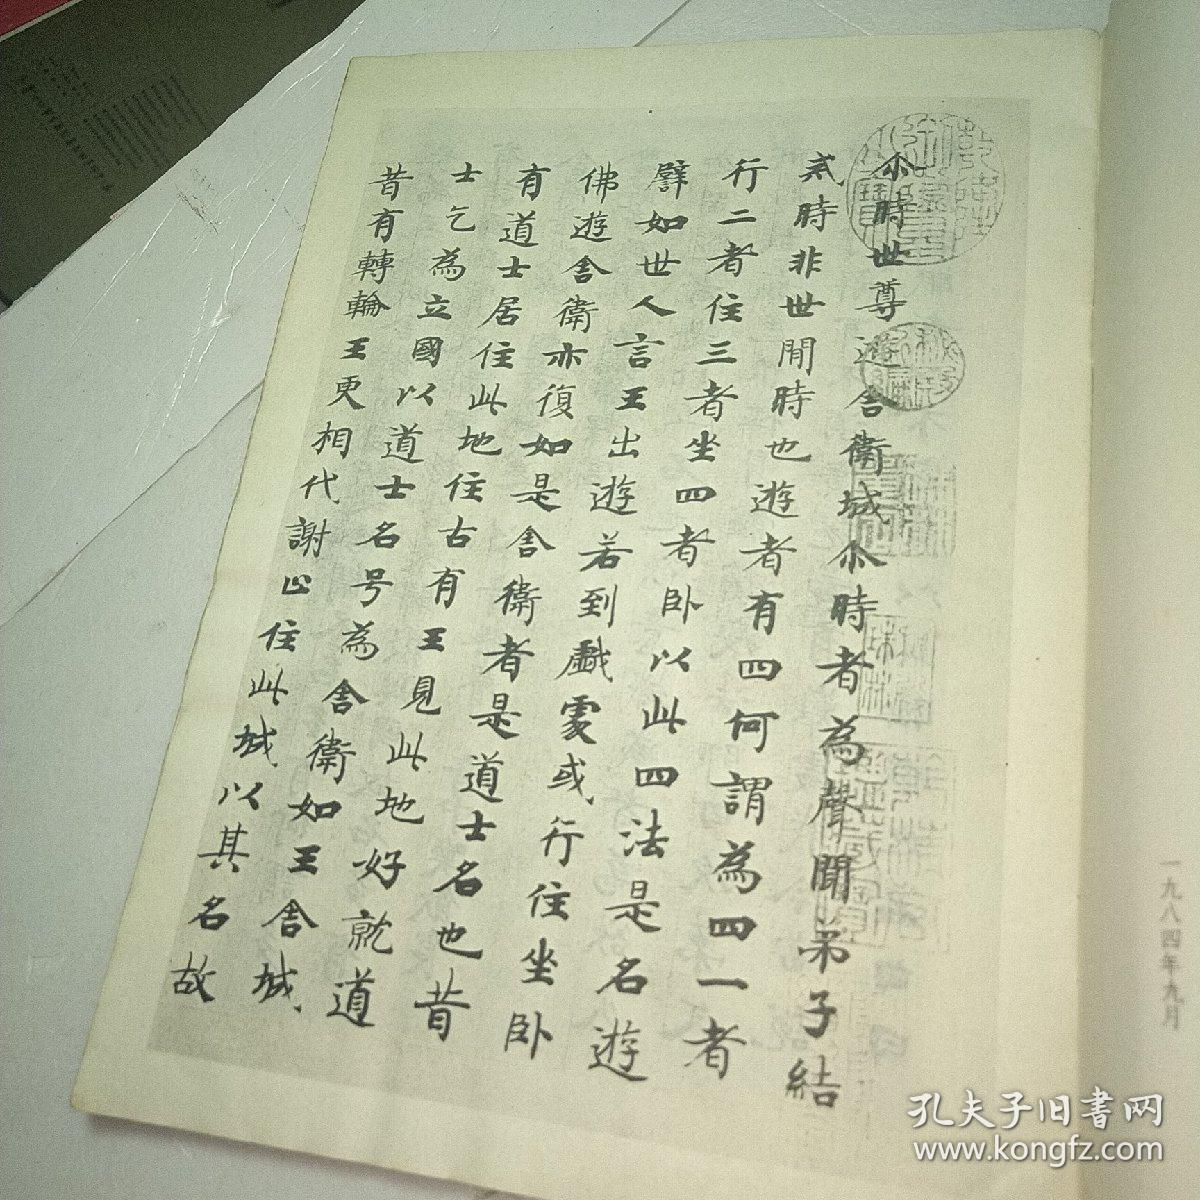 尒時世尊遊舍衛城尒時者為聲聞弟子結
戒時非世間時也遊者有四何謂為四一者
行二者住三者坐四者卧以此四法是名遊
譬如世人言王出遊若到戲處或行住坐卧
佛遊舍衛亦復如是舍衛者是道士名也昔
有道士居住此地往古有王見此地好就道
士乞為立國以道士名号為舍衛如王舍城
昔有轉輪王更相代謝止住此城以其名故
一九八四年九月
孔夫子旧书网
www.kongfz.com